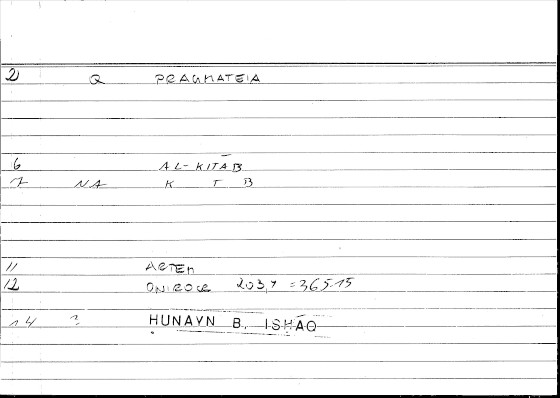 2 Q PRAGMATEIA
6 AL-KITĀB
7 NA K T B
11 ARTEM
12 ONIROCR 203,9 = 365.15
14 ? HUNAYN B. ISHĀQ